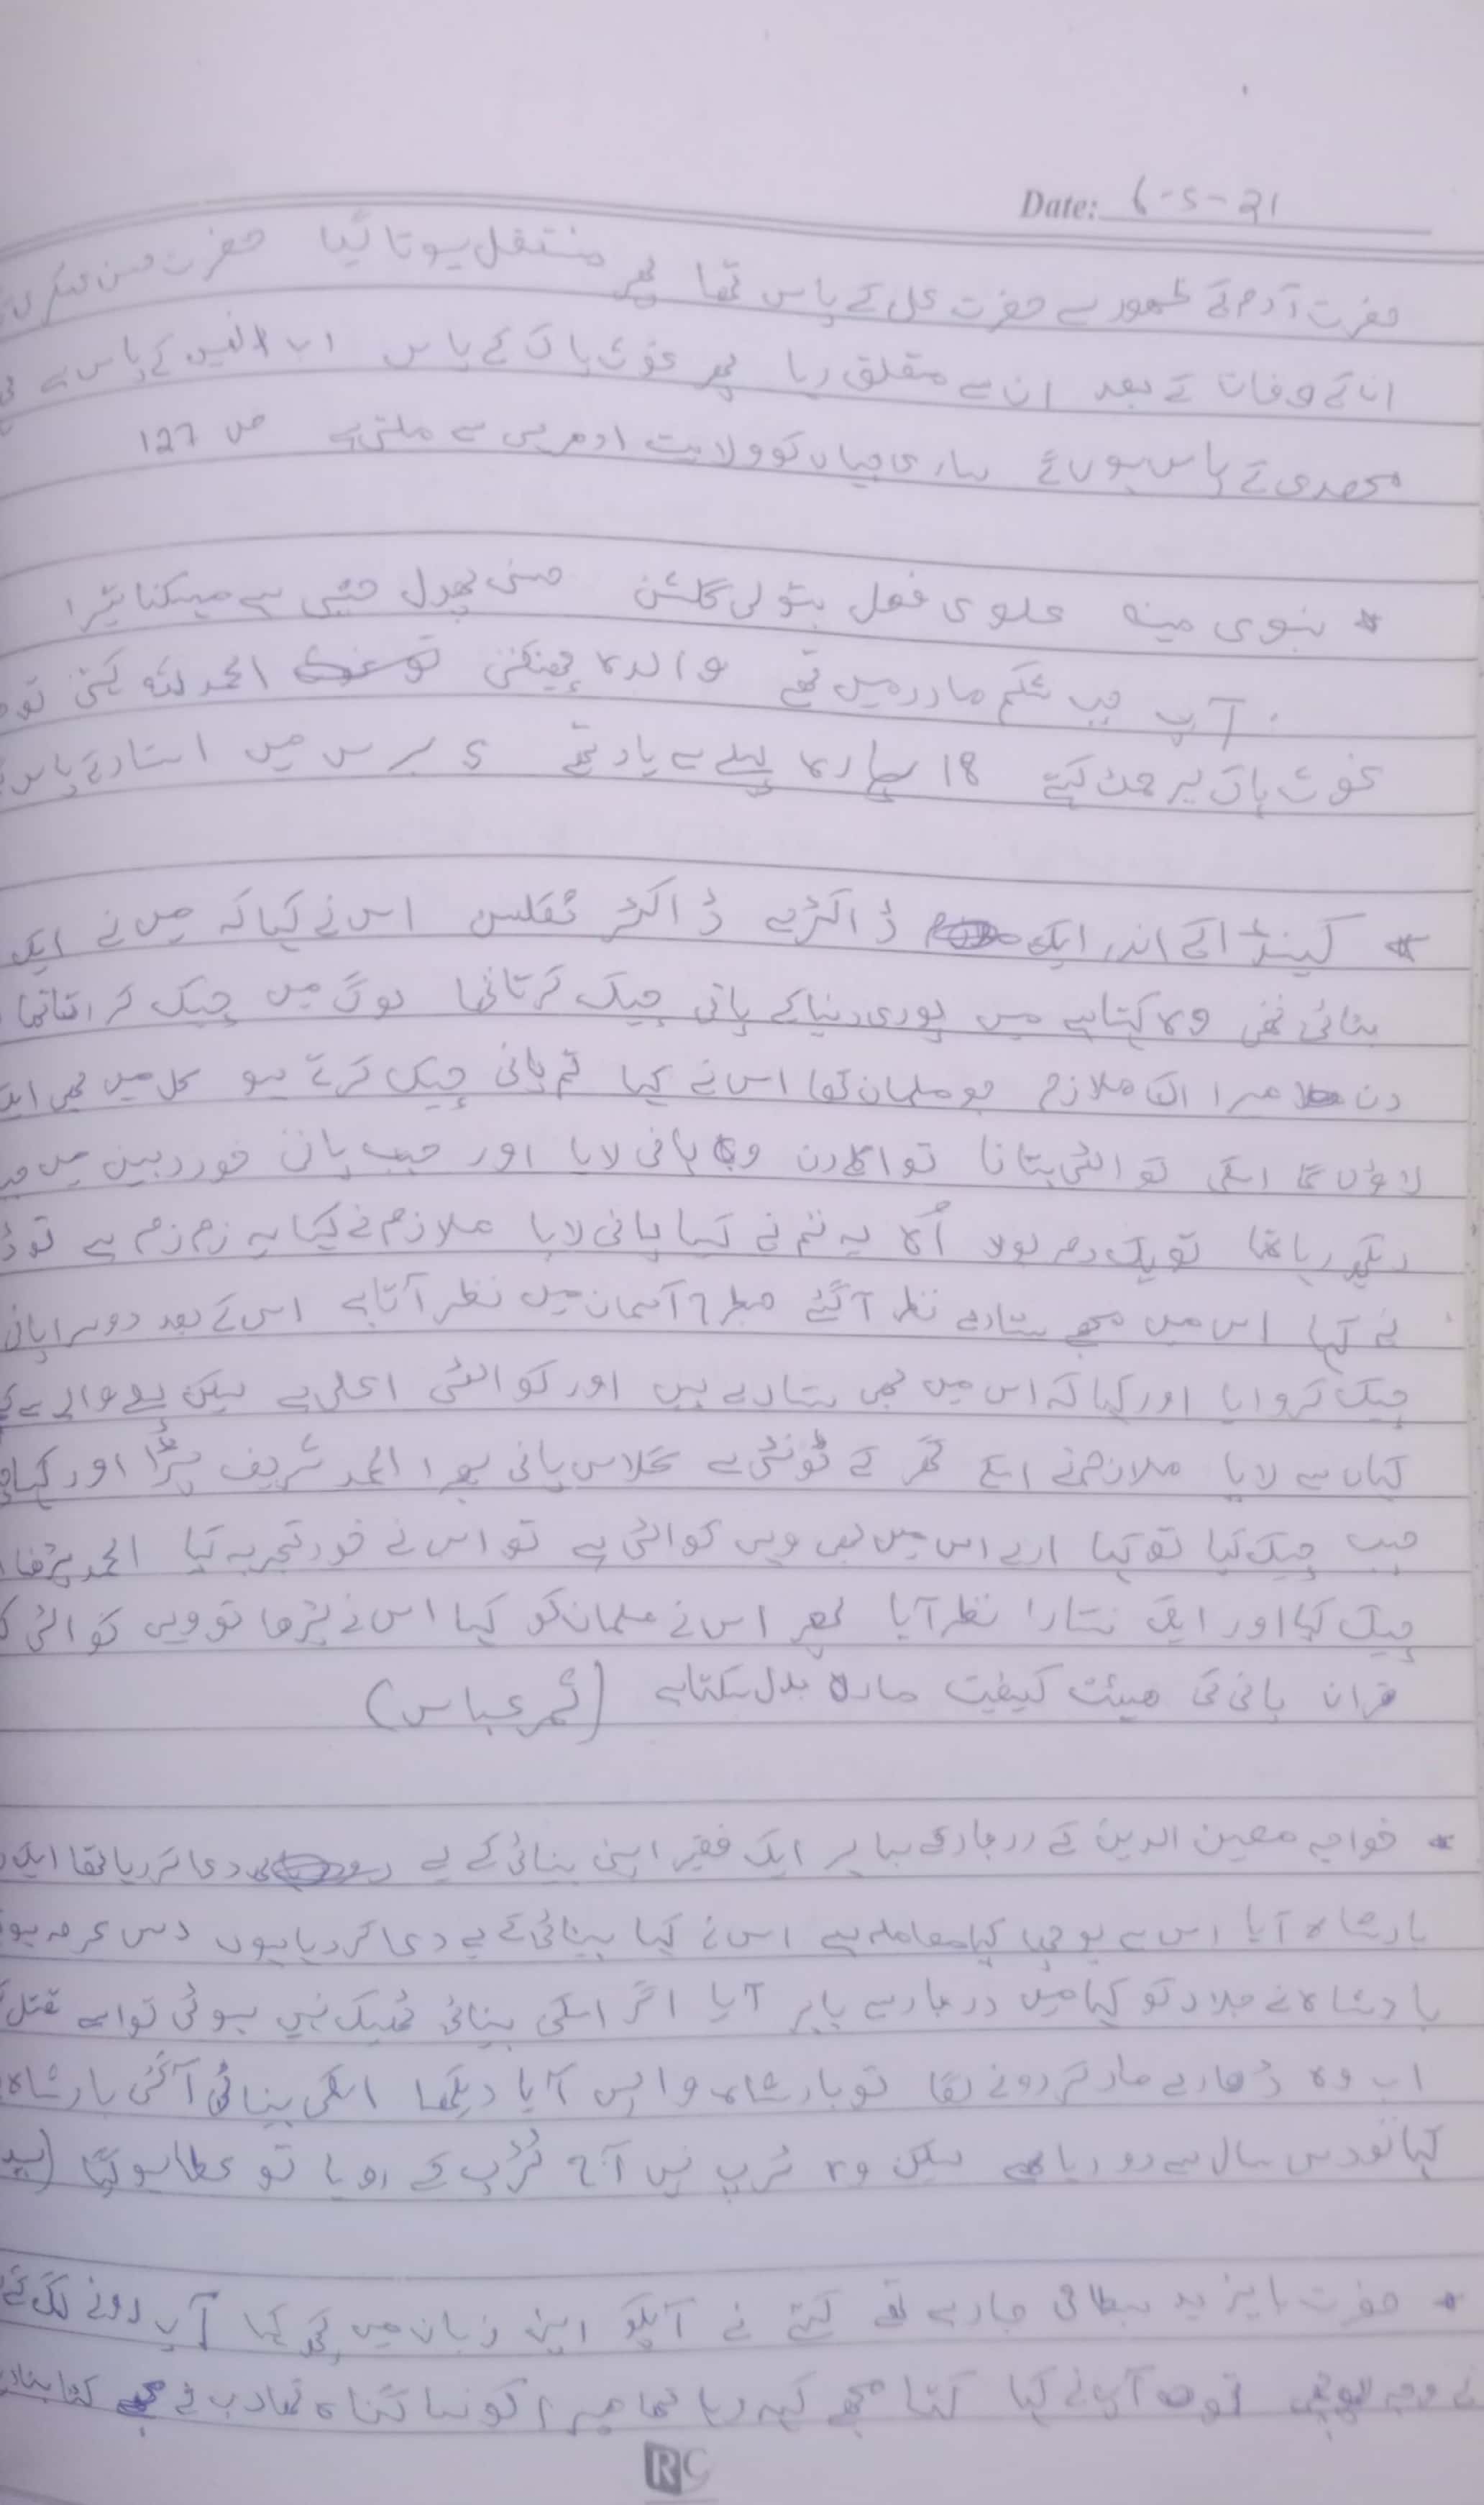 Date: 6-5-21
حضرت آدم کے ظہور سے حضرت علی کے پاس تھا پھر منتقل ہوتا گیا حضرت حسن عسکری
ان کے وفات کے بعد ان سے متعلق رہا پھر غوث پاک کے پاس اب انہیں کے پاس ہے
محمدی کے پاس ہوں گے ساری جہاں کو ولایت ادھر ہی سے ملتی ہے ص 127
* نبوی مینہ علوی فصل بتولی گلشن حسنی پھول حسینی ہے مہکنا تیرا
آپ جب شکم مادر میں تھے والدہ چھینکتی تو الحمد للہ کہتی تو
غوث پاک یرحمک کہتے 18 سپارہ پہلے سے یاد تھے 5 برس میں استاد کے پاس
* کینڈا کے اندر ایک ڈاکٹر ہے ڈاکٹر اس نے کہا کہ میں نے ایک
بنائی تھی وہ کہتا ہے میں پوری دنیا کے پانی چیک کرتا تھا لوگ میں چیک کراتا تھا
دن میرا اک ملازم جو مسلمان تھا اس نے کہا تم پانی چیک کرتے ہو کل میں بھی ایک
لاؤں گا اسکی کوالٹی بتانا تو اگلا دن وہ پانی لایا اور جب پانی خوردبین میں
دیکھ رہا تھا تو یک دم بولا یہ تم نے کیسا پانی لایا ملازم نے کہا یہ زم زم ہے تو
نے کہا اس میں مجھے ستارے نظر آگئے جو آسمان میں نظر آتا ہے اس کے بعد دوسرا پانی
چیک کروایا اور کہا کہ اس میں بھی ستارے ہیں اور کوالٹی اعلی ہے لیکن پہلے والے سے
کہاں سے لایا ملازم نے اپنے گھر کے ٹونٹی سے گلاس پانی بھرا الحمد شریف پڑا اور کہا
جب چیک کیا تو کہا ارے اس میں بھی وہی کوالٹی ہے تو اس نے خود تجربہ کیا الحمد پڑھا
چیک کیا اور ایک ستارا نظر آیا پھر اس نے مسلمان کو کہا اس نے پڑھا تو وہی کوالٹی
قران پانی کی ھیئت کیفیت مادہ بدل سکتا ہے (ثمر عباس)
* خواجہ معین الدین کے دربار پر ایک فقیر اپنی بینائی کے لیے دعا کر رہا تھا ایک
بادشاہ آیا اس سے پوچھی کیا معاملہ ہے اس نے کہا بینائی کے لیے دعا کر رہا ہوں دس عرصہ ہو
بادشاہ نے جلاد کو کہا میں دربار سے باہر آیا اگر اسکی بینائی ٹھیک نہیں ہوئی تو اسے قتل
اب وہ ڈھاریں مار کر رونے لگا تو بادشاہ واپس آیا دیکھا اسکی بینائی آگئی بادشاہ
کہا تو دس سال سے رو رہا ہے لیکن وہ تڑپ نہیں آج تڑپ کے رویا تو عطا ہو گیا
* حضرت بایزید بسطامی جا رہے تھے کتے نے آپکو اپنی زبان میں کچھ کہا آپ رونے لگ گئے
نے وجہ پوچھی تو آپ نے کہا کتا مجھے کہہ رہا تھا میرا کونسا گناہ تھا رب نے مجھے کتا بنا دیا
RC